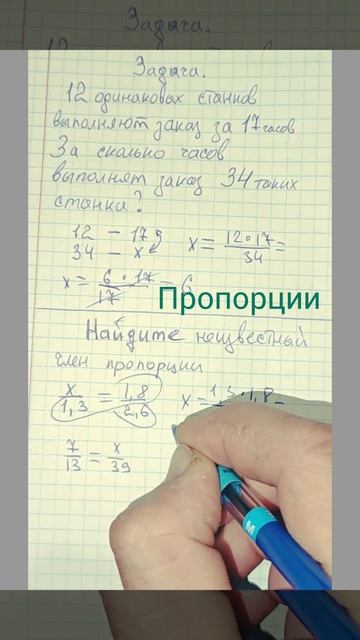 Задача.
Задача.
12 одинаковых станков
выполняют заказ за 17 часов
За сколько часов
выполнят заказ 34 таких
станка?
12 – 17
34 – x
x = 12·17/34 =
x = 6·17/17 = 6
Пропорции
Найдите неизвестный
член пропорции
x/1,3 = 1,8/2,6
x = 1,3·1,8 =
7/13 = x/39
M